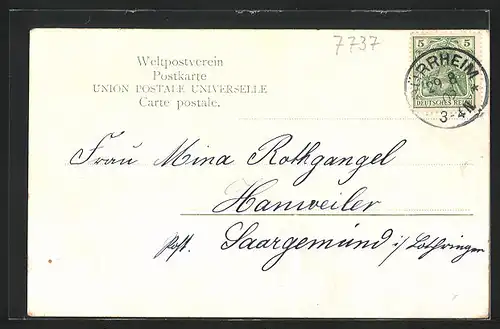 7737
5 5
DEUTSCHES REICH
ÜRRHEIM
29 8
3-4N
Weltpostverein
Postkarte
UNION POSTALE UNIVERSELLE
Carte postale.
Frau Mina Rothgangel
Hanweiler
Post. Saargemünd i/ Lothringen